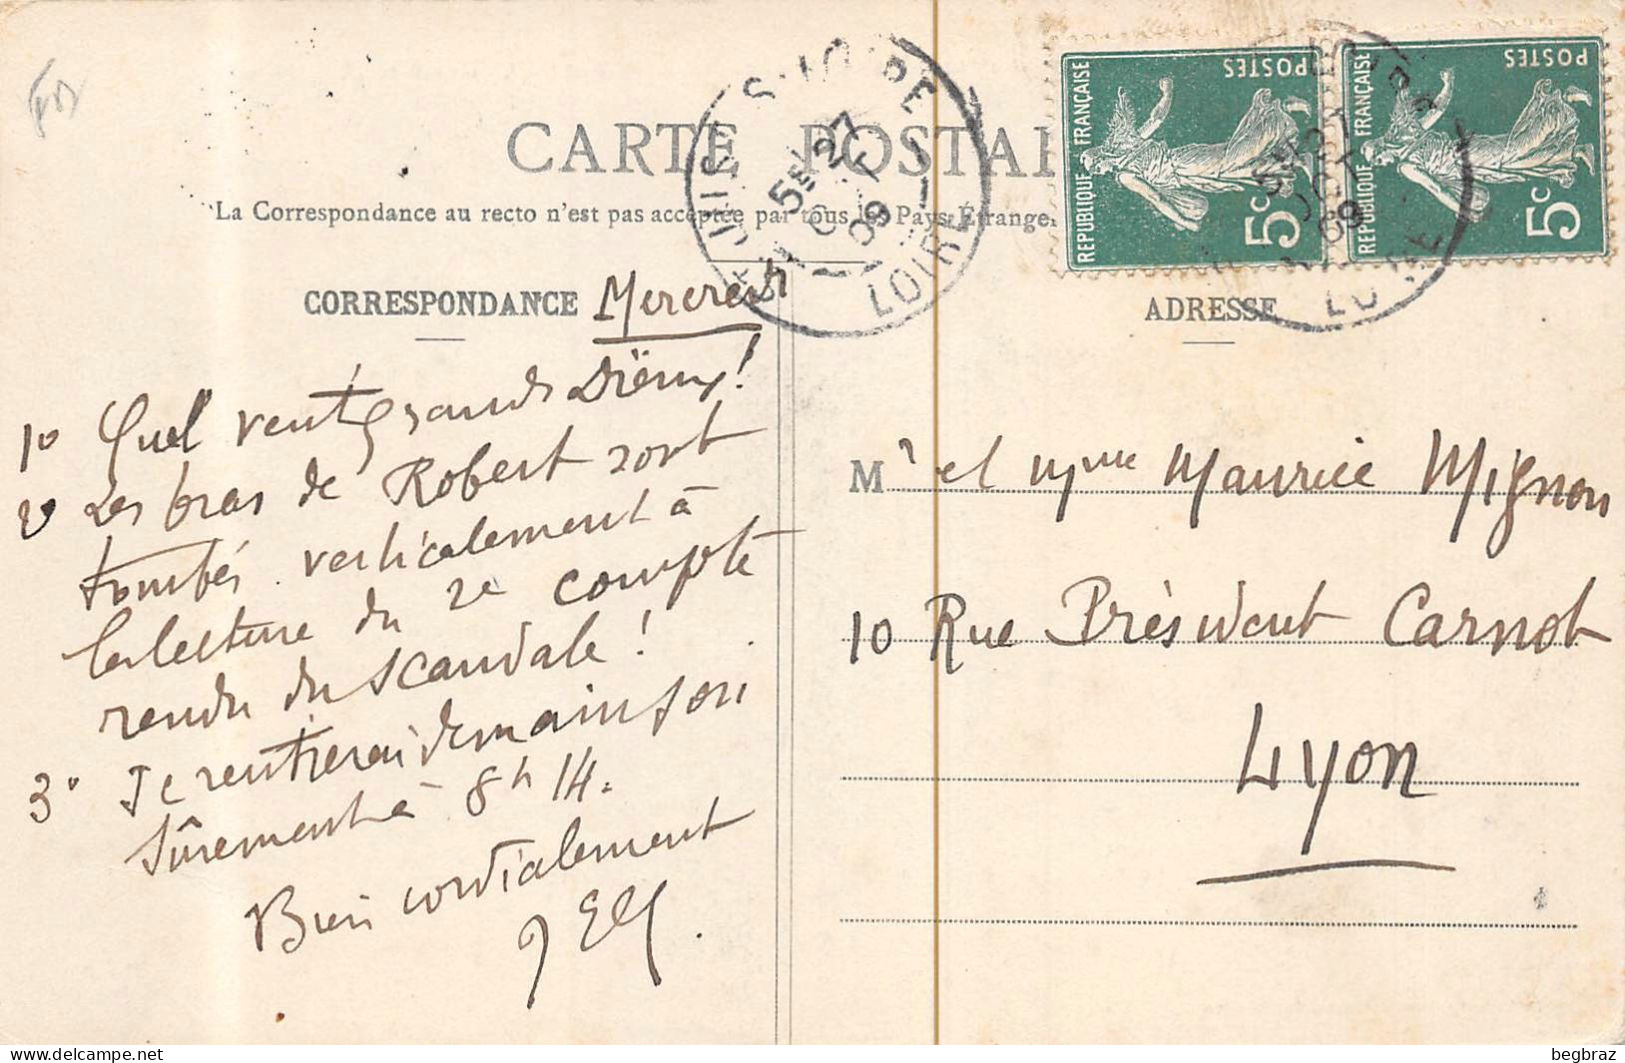 CARTE POSTALE
La Correspondance au recto n'est pas acceptée par tous les Pays Étrangers
RÉPUBLIQUE FRANÇAISE
POSTES
5c
RÉPUBLIQUE FRANÇAISE
POSTES
5c
LOIRE
5E 27
OCT
09
27
OCT
09
CORRESPONDANCE Mercredi
1° Quel vent grands Diëux!
2° Les bras de Robert sont
tombés verticalement à
la lecture du 2e compte
rendu du scandale!
3° Je rentrerai demain soir
sûrement à 8h 14.
Bien cordialement
ADRESSE
Mr et Mme Maurice Mignon
10 Rue Présidant Carnot
Lyon
begbraz